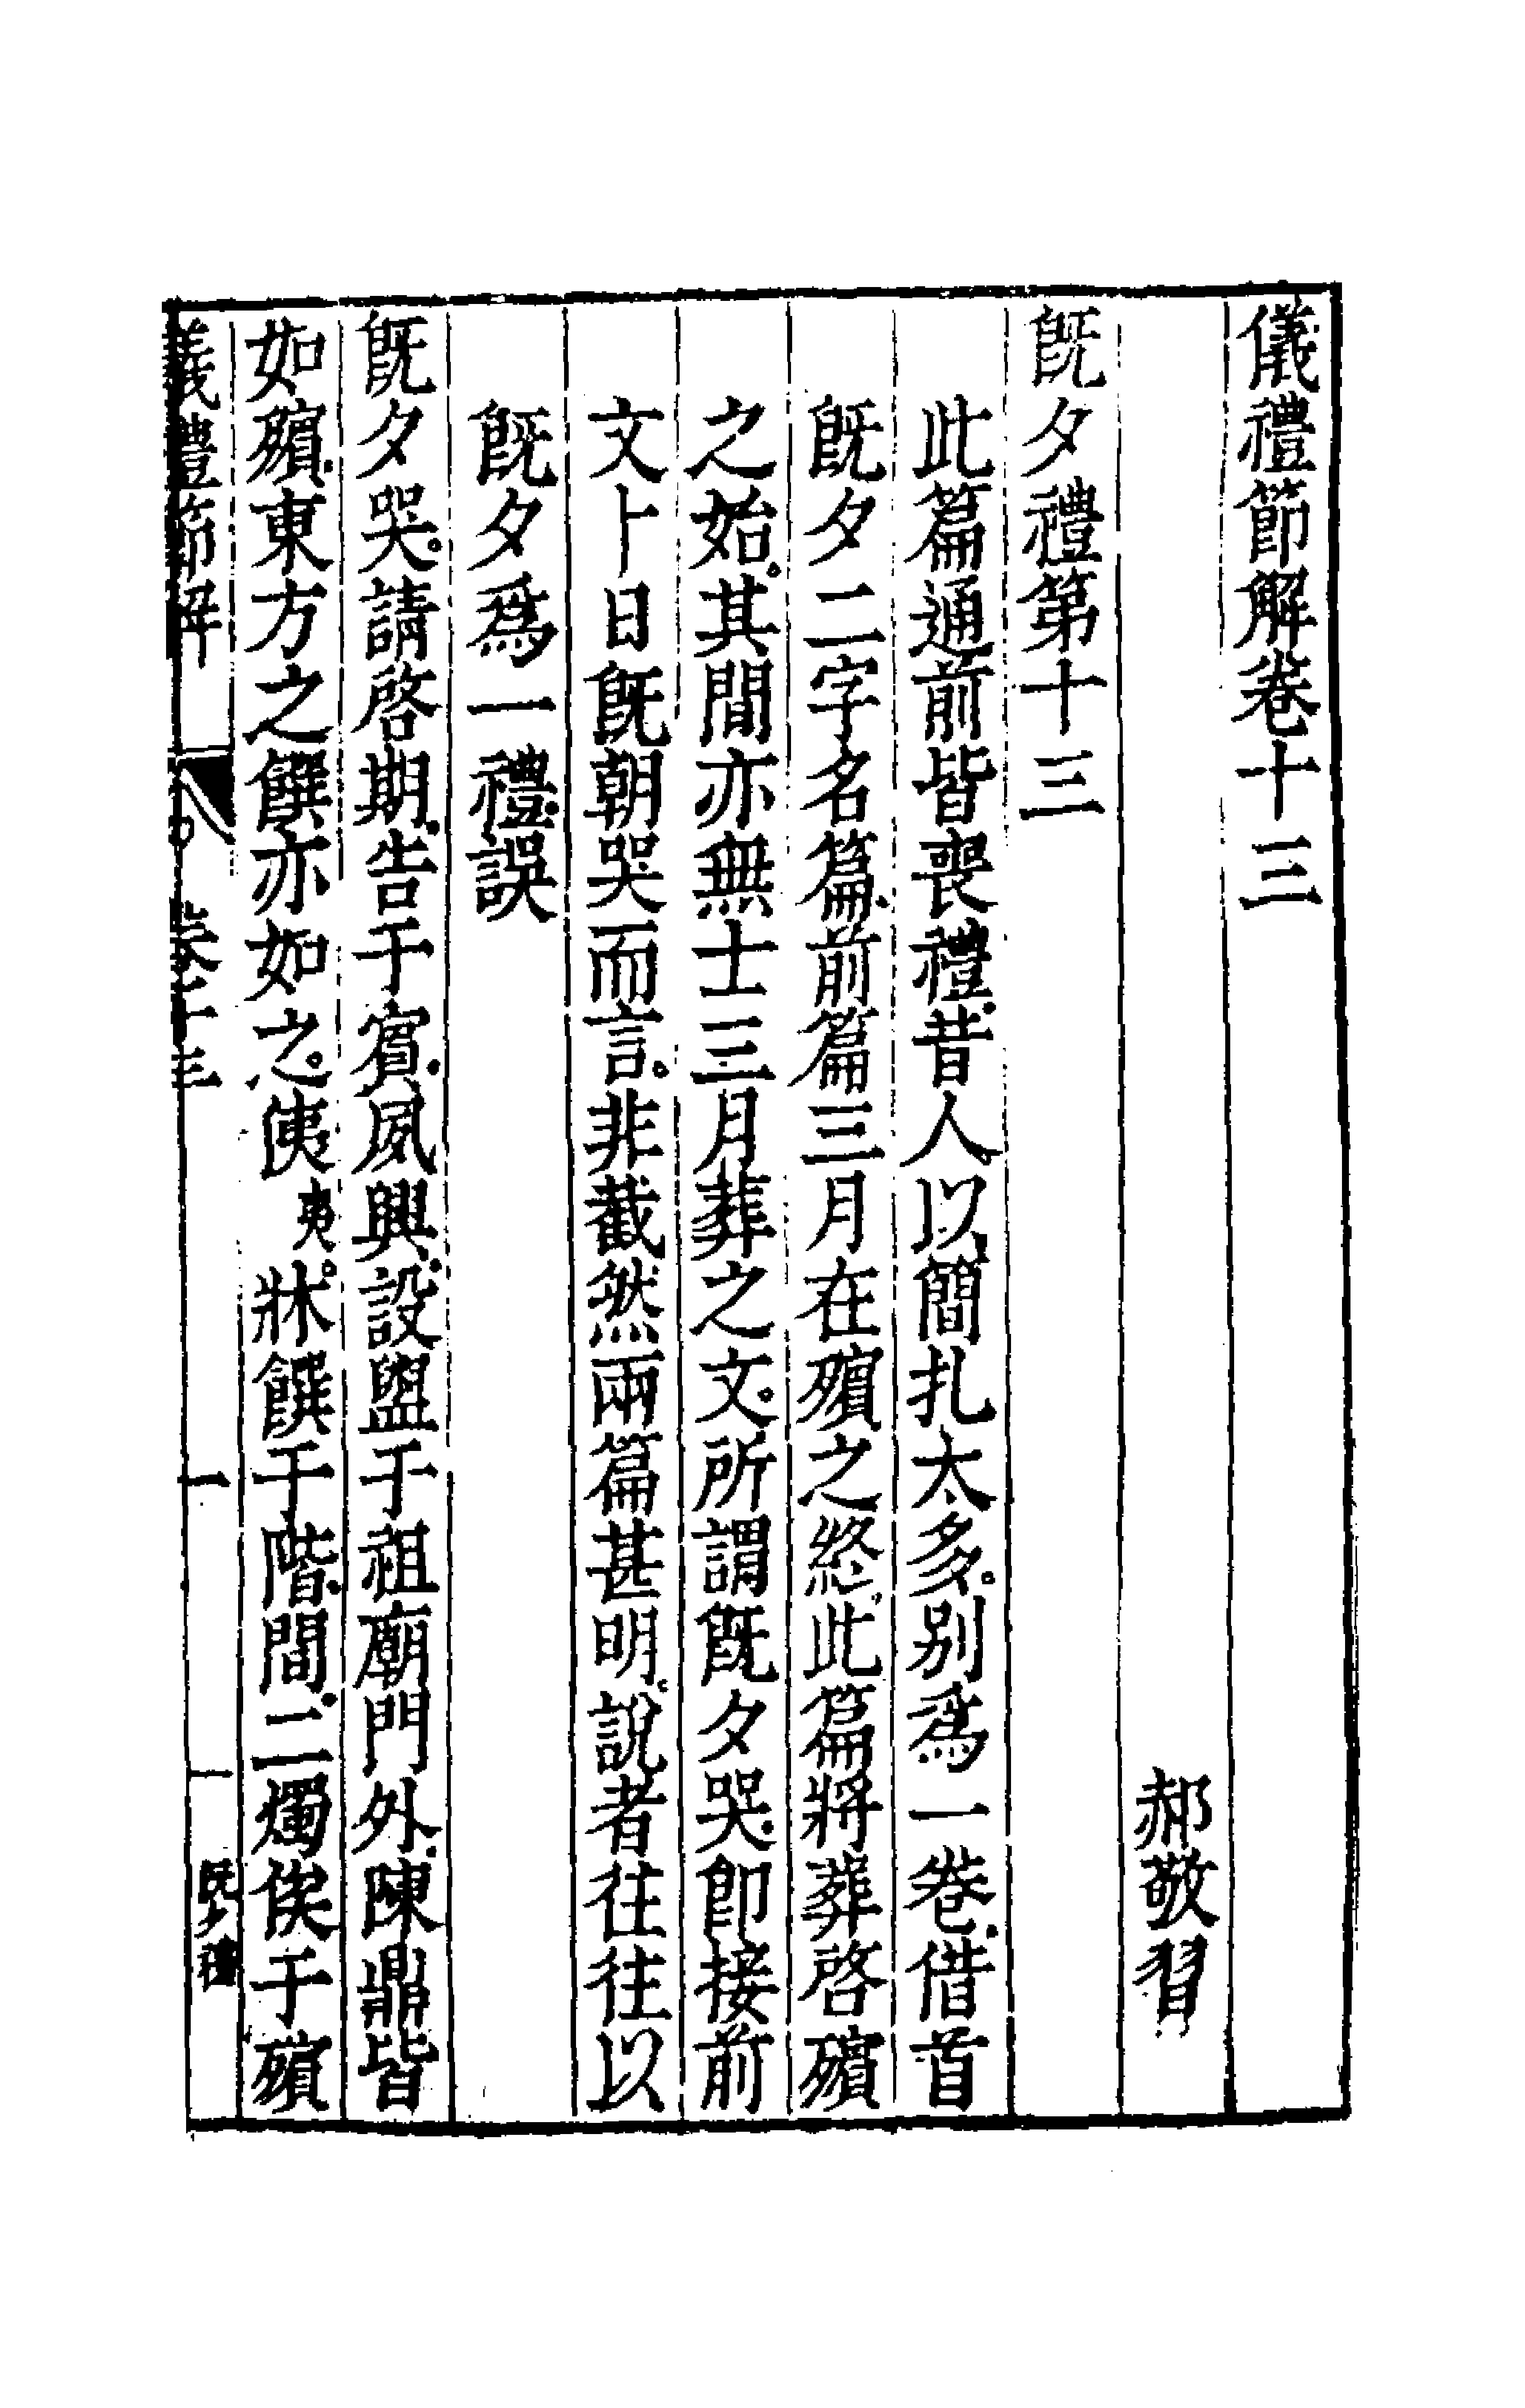 儀禮節解卷十三
郝敬習
旣夕禮第十三
此篇通前皆喪禮昔人以簡扎太多別爲一卷借首
旣夕二字名篇前篇三月在殯之終此篇將葬啓殯
之始其間亦無士三月葬之文所謂旣夕哭卽接前
文卜日旣朝哭而言非截然兩篇甚明說者往往以
旣夕爲一禮誤
旣夕哭請啓期告于賓夙興設盥于祖廟門外陳鼎皆
如殯東方之饌亦如之侇夷牀饌于階間二燭俟于殯
儀禮節解 卷十三 一